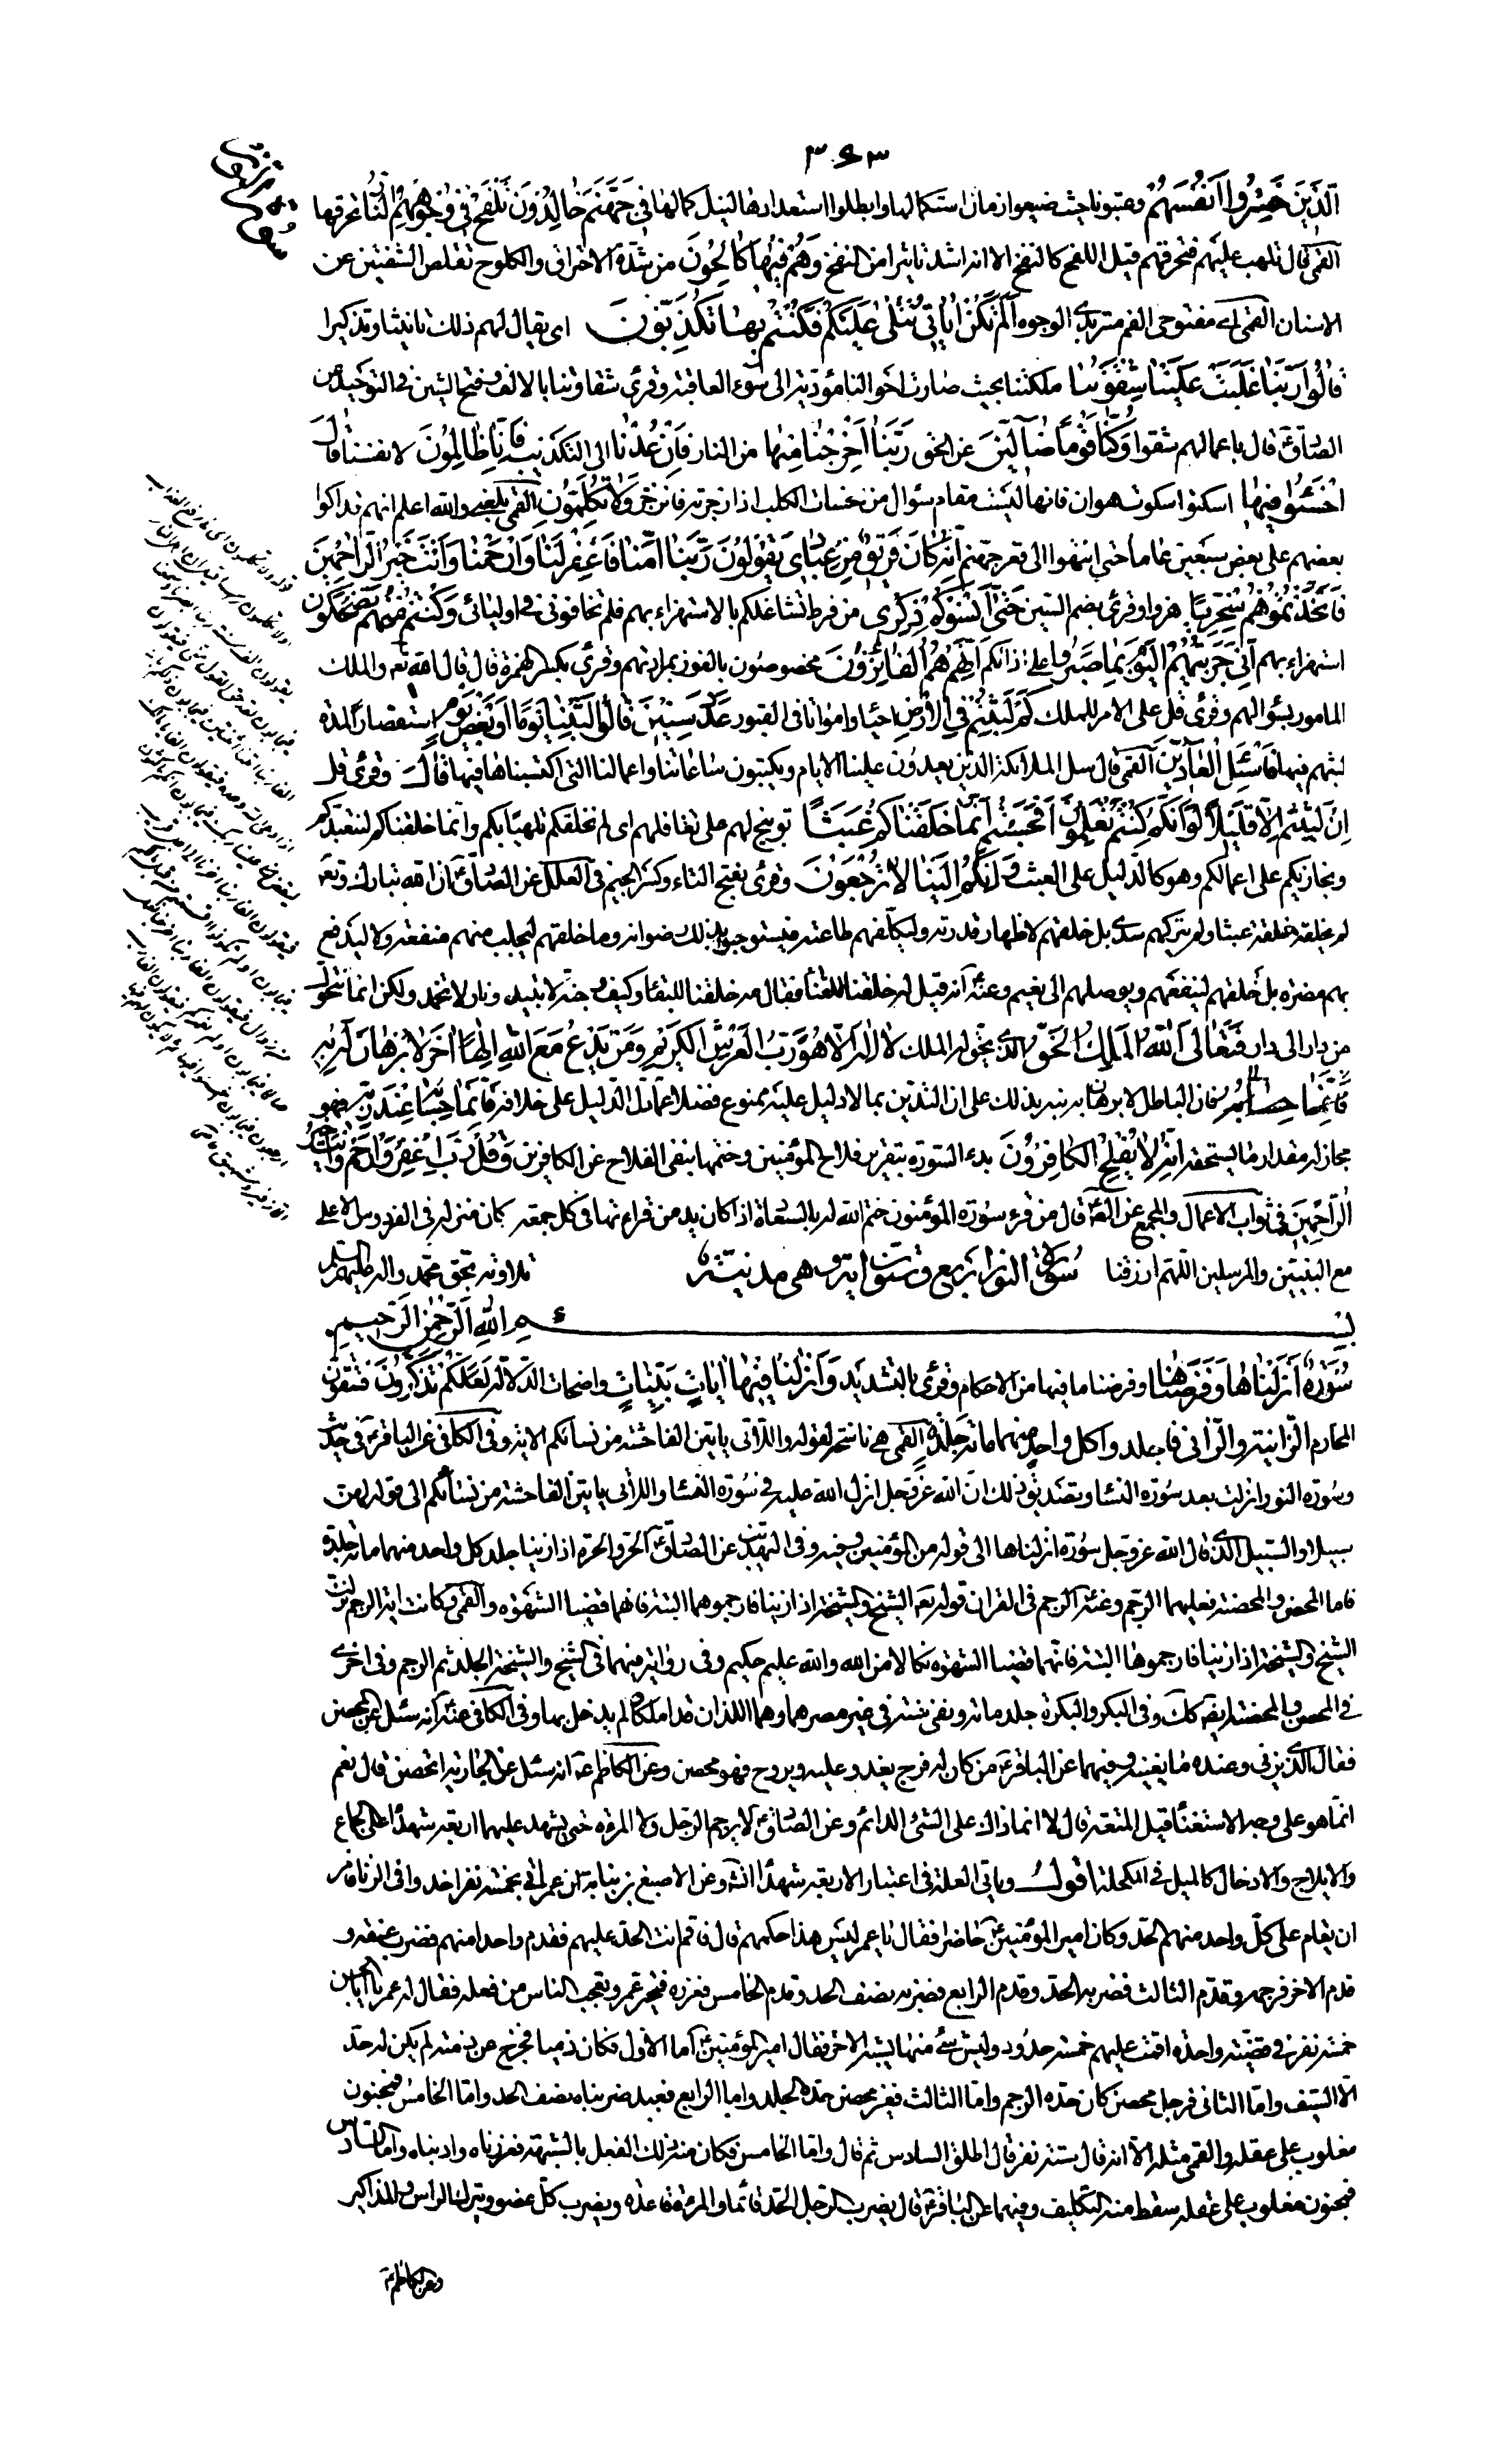 ٣٤٣
الَّذِينَ خَسِرُوا أَنْفُسَهُمْ وغبنوها حيث ضيعوا زمان استكمالها وابطلوا استعدادها لنيل كمالها فِي جَهَنَّمَ خالِدُونَ تَلْفَحُ وُجُوهَهُمُ النَّارُ تحرقها
القمي قال تلهب عليهم فتحرقهم قيل اللفح كالنفخ الا انه اشد تاثيرا من النفخ وَهُمْ فِيها كالِحُونَ من شدة الاحتراق والكلوح تقلص الشفتين عن
الاسنان القمي اي مفتوحي الفم متربدي الوجوه أَلَمْ تَكُنْ آياتِي تُتْلى عَلَيْكُمْ فَكُنْتُمْ بِها تُكَذِّبُونَ اى يقال لهم ذلك تانيثا وتذكيرا
قالُوا رَبَّنا غَلَبَتْ عَلَيْنا شِقْوَتُنا ملكتنا بحيث صارت احوالنا مؤدية الى سوء العاقبة وقرئ شقاوتنا بالالف وفتح الشين في التوحيد عن
الصادق ع قال باعمالهم شقوا وَكُنَّا قَوْماً ضالِّينَ عن الحق رَبَّنا أَخْرِجْنا مِنْها من النار فَإِنْ عُدْنا الى التكذيب فَإِنَّا ظالِمُونَ لانفسنا قالَ
اخْسَؤُا فِيها اسكتوا سكوت هوان فانها ليست مقام سؤال من خسات الكلب اذا زجرته فانزجر وَلا تُكَلِّمُونِ القمي بلغني والله اعلم انهم تداكوا
بعضهم على بعض سبعين عاما حتى انتهوا الى قعر جهنم إِنَّهُ كانَ فَرِيقٌ مِنْ عِبادِي يَقُولُونَ رَبَّنا آمَنَّا فَاغْفِرْ لَنا وَارْحَمْنا وَأَنْتَ خَيْرُ الرَّاحِمِينَ
فَاتَّخَذْتُمُوهُمْ سِخْرِيًّا هزوا وقرئ بضم السين حَتَّى أَنْسَوْكُمْ ذِكْرِي من فرط تشاغلكم بالاستهزاء بهم فلم تخافوني في اوليائي وَكُنْتُمْ مِنْهُمْ تَضْحَكُونَ
استهزاء بهم إِنِّي جَزَيْتُهُمُ الْيَوْمَ بِما صَبَرُوا على اذاكم أَنَّهُمْ هُمُ الْفائِزُونَ مخصوصون بالفوز بمراداتهم وقرئ بكسر الهمزة قال قال الله تعه والملك
المامور بسؤالهم وقرئ قل على الامر للملك كَمْ لَبِثْتُمْ فِي الْأَرْضِ احياء وامواتا في القبور عَدَدَ سِنِينَ قالُوا لَبِثْنا يَوْماً أَوْ بَعْضَ يَوْمٍ استقصارا لمدة
لبثهم فيها فَسْئَلِ الْعادِّينَ القمي قال سل الملائكة الذين يعدون علينا الايام ويكتبون ساعاتنا واعمالنا التي اكتسبناها فيها قالَ وقرئ قل
إِنْ لَبِثْتُمْ إِلَّا قَلِيلاً لَوْ أَنَّكُمْ كُنْتُمْ تَعْلَمُونَ أَفَحَسِبْتُمْ أَنَّما خَلَقْناكُمْ عَبَثاً توبيخ لهم على تغافلهم اى لم نخلقكم تلهيا بكم وانما خلقناكم لنتعبدكم
ونجازيكم على اعمالكم وهو كالدليل على البعث وَأَنَّكُمْ إِلَيْنا لا تُرْجَعُونَ وقرئ بفتح التاء وكسر الجيم في العلل عن الصادق ع ان الله تبارك وتعه
لم يخلق خلقه عبثا ولم يتركهم سدى بل خلقهم لاظهار قدرته وليكلفهم طاعته فيستوجبوا بذلك رضوانه وما خلقهم ليجلب منهم منفعة ولا ليدفع
بهم مضرة بل خلقهم لينفعهم ويوصلهم الى نعيم وعنه ع انه قيل له خلقنا للفناء فقال مه خلقنا للبقاء وكيف وجنة لا تبيد ونار لا تخمد ولكن انما نتحول
من دار الى دار فَتَعالَى اللَّهُ الْمَلِكُ الْحَقُّ الذي يحق له الملك لا إِلهَ إِلَّا هُوَ رَبُّ الْعَرْشِ الْكَرِيمِ وَمَنْ يَدْعُ مَعَ اللَّهِ إِلهاً آخَرَ لا بُرْهانَ لَهُ بِهِ
فان الباطل لا برهان به نبه بذلك على ان التدين بما لا دليل عليه ممنوع فضلا عما دل الدليل على خلافه فَإِنَّما حِسابُهُ عِنْدَ رَبِّهِ فهو
مجاز له مقدار ما يستحقه إِنَّهُ لا يُفْلِحُ الْكافِرُونَ بدء السورة بتقرير فلاح المؤمنين وختمها بنفي الفلاح عن الكافرين وَقُلْ رَبِّ اغْفِرْ وَارْحَمْ وَأَنْتَ خَيْرُ
الرَّاحِمِينَ في ثواب الاعمال والمجمع عن الصادق ع قال من قرء سورة المؤمنون ختم الله له بالسعادة اذا كان يدمن قراءتها في كل جمعة كان منزله في الفردوس الاعلى
مع النبيين والمرسلين اللهم ارزقنا سورة النور اربع وستون آية وهي مدنية تلاوته بحق محمد وآله عليهم السلم
بِسْمِ اللَّهِ الرَّحْمنِ الرَّحِيمِ
سُورَةٌ أَنْزَلْناها وَفَرَضْناها وفرضنا ما فيها من الاحكام وقرئ بالتشديد وَأَنْزَلْنا فِيها آياتٍ بَيِّناتٍ واضحات الدلالة لَعَلَّكُمْ تَذَكَّرُونَ فتتقون
المحارم الزانية والزاني فاجلدوا كل واحد منهما مائة جلدة القمي هي ناسخة لقوله واللاتي ياتين الفاحشة من نسائكم الاية وفي الكافي عن الباقر ع في حديث
وسورة النور انزلت بعد سورة النساء وتصديق ذلك ان الله عز وجل انزل الله عليه في سورة النساء واللاتي ياتين الفاحشة من نسائكم الى قوله لهن
سبيلا والسبيل الذي قال الله عز وجل سورة انزلناها الى قوله من المؤمنين وفيه وفي التهذيب عن الصادق ع الحر والحرة اذا زنيا جلد كل واحد منهما مائة جلدة
فاما المحصن والمحصنة فعليهما الرجم وعنه ع الرجم في القران قوله تعه الشيخ والشيخة اذا زنيا فارجموهما البتة فانهما قضيا الشهوة والقمي وكانت آية الرجم نزلت
الشيخ والشيخة اذا زنيا فارجموهما البتة فانهما قضيا الشهوة نكالا من الله والله عليم حكيم وفي رواية فيهما في الشيخ والشيخة الجلد ثم الرجم وفي اخرى
في المحصن والمحصنة ايضه كك وفي البكر والبكرة جلد مائة ونفي سنة في غير مصرهما وهما اللذان قد املكا ولم يدخل بها وفي الكافي عنه ع انه سئل عن المحصن
فقال الذي يزني وعنده ما يغنيه وفيهما عن الباقر ع من كان له فرج يغدو عليه ويروح فهو محصن وعن الكاظم ع انه سئل عن الجارية اتحصن قال نعم
انما هو على وجه الاستغناء قيل المتعة قال لا انما ذاك على الشئ الدائم وعن الصادق ع لا يرجم الرجل ولا المرءة حتى يشهد عليهما اربعة شهداء على الجماع
والايلاج والادخال كالميل في المكحلة اقول وياتي العلة في اعتبار الاربعة شهداء انشه وعن الاصبغ بن نباتة ان عمر اتي بخمسة نفر اخذوا في الزنا فامر
ان يقام على كل واحد منهم الحد وكان امير المؤمنين ع حاضرا فقال يا عمر ليس هذا حكمهم قال فاقم انت الحد عليهم فقدم واحدا منهم فضرب عنقه و
قدم الاخر فرجمه وقدم الثالث فضربه الحد وقدم الرابع فضربه نصف الحد وقدم الخامس فعزره فتحير عمر وتعجب الناس من فعله فقال له عمر يا ابا الحسن
خمسة نفر في قضية واحدة اقمت عليهم خمسة حدود وليس شئ منها يشبه الاخر فقال امير المؤمنين ع اما الاول فكان ذميا فخرج عن ذمته لم يكن له حد
الا السيف واما الثاني فرجل محصن كان حده الرجم واما الثالث فغير محصن حده الجلد واما الرابع فعبد ضربناه نصف الحد واما الخامس فمجنون
مغلوب على عقله والقمي مثله الا انه قال ستة نفر قال اطلق السادس ثم قال واما الخامس فكان منه ذلك الفعل بالشبهة فعزرناه وادبناه واما السادس
فمجنون مغلوب على عقله سقط منه التكليف وفيهما عن الباقر ع قال يضرب الرجل الحد قائما والمرءة قاعدة ويضرب كل عضو ويترك الراس والمذاكير
وعن الكاظم ع